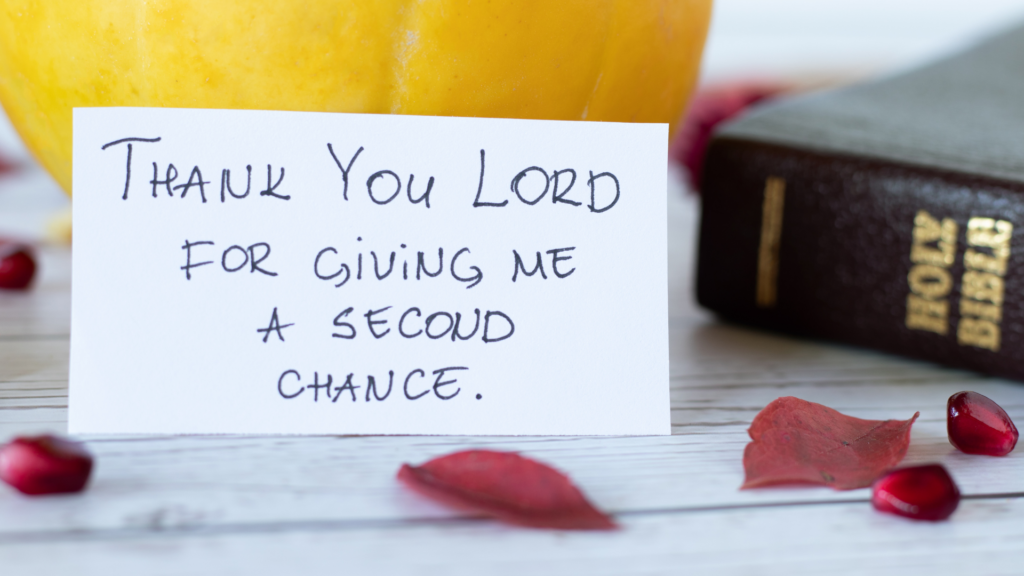 THANK YOU LORD
FOR GIVING ME
A SECOND
CHANCE.
HOLY
BIBLE